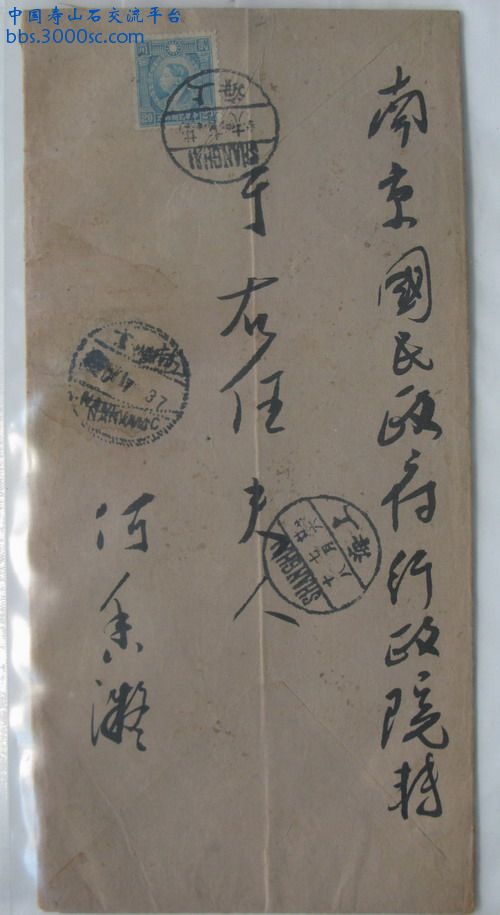 中国寿山石交流平台
bbs.3000sc.com
南京國民政府行政院轉
于右任夫人
何香凝
上海
SHANGHAI
上海
SHANGHAI
37
20